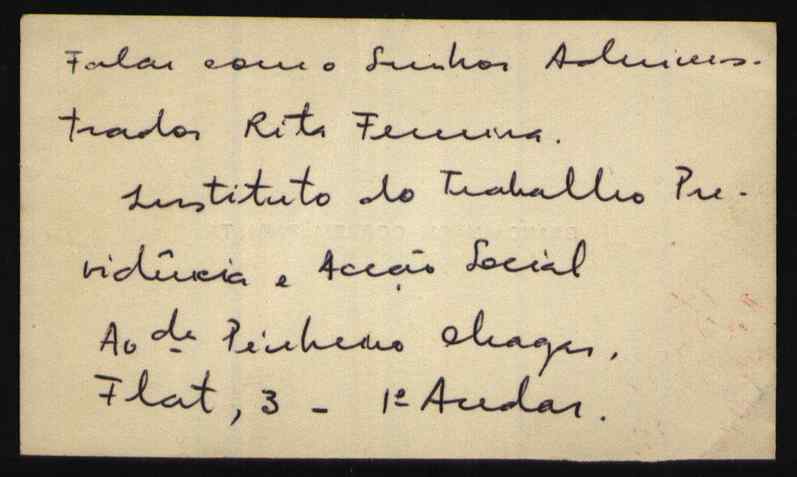 Falar com o Senhor Adminis-
trador Rita Ferreira.
Instituto do Trabalho Pre-
vidência e Acção Social
Av de Pinheiro Chagas,
Flat, 3 - 1º Andar.